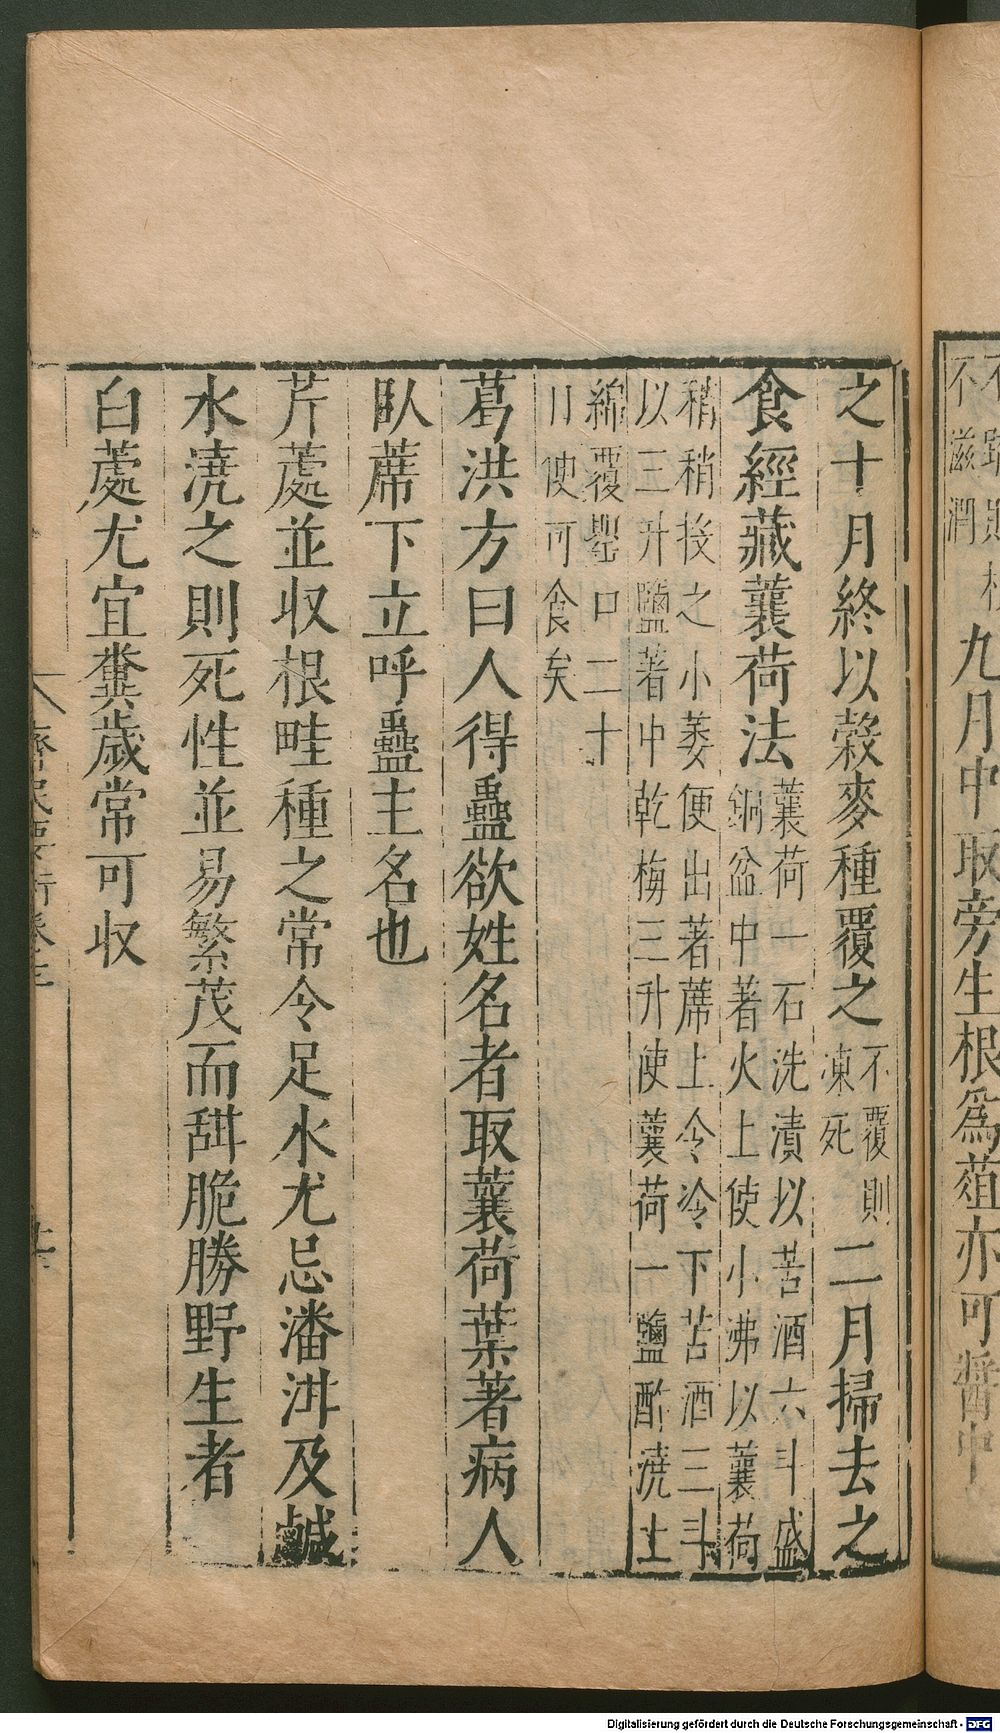 不滋潤
九月中取旁生根為葅亦可醬中
之十月終以榖麥種覆之不覆則
凍死
二月掃去之
食經藏蘘荷法蘘荷一石洗漬以苦酒六斗盛
銅盆中著火上使小沸以蘘荷
稍稍投之小萎便出著蓆上令冷下苦酒三斗
以三升鹽著中乾梅三升使蘘荷一鹽酢澆上
綿覆罌口二十
日便可食矣
葛洪方曰人得蠱欲姓名者取蘘荷葉著病人
臥蓆下立呼蠱主名也
芹藘並収根畦種之常令足水尤忌潘泔及鹹
水澆之則死性並易繁茂而甜脆勝野生者
白藘尤宜糞歲常可収
Digitalisierung gefördert durch die Deutsche Forschungsgemeinschaft - DFG